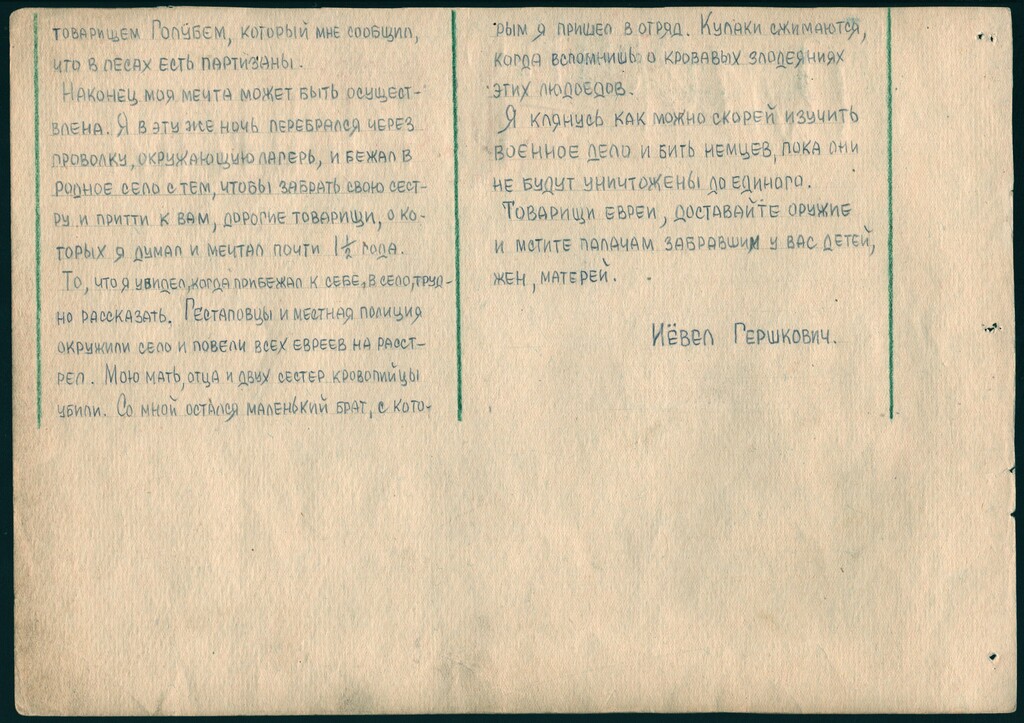 товарищем Голубем, который мне сообщил,
что в лесах есть партизаны.
Наконец моя мечта может быть осущест-
влена. Я в эту же ночь перебрался через
проволку, окружающую лагерь, и бежал в
родное село с тем, чтобы забрать свою сест-
ру и притти к вам, дорогие товарищи, о ко-
торых я думал и мечтал почти 1½ года.
То, что я увидел, когда прибежал к себе, в село, труд-
но рассказать. Гестаповцы и местная полиция
окружили село и повели всех евреев на расст-
рел. Мою мать, отца и двух сестер кровопийцы
убили. Со мной остался маленький брат, с кото-
рым я пришел в отряд. Кулаки сжимаются,
когда вспомнишь о кровавых злодеяниях
этих людоедов.
Я клянусь как можно скорей изучить
военное дело и бить немцев, пока они
не будут уничтожены до единого.
Товарищи евреи, доставайте оружие
и мстите палачам забравшим у вас детей,
жен, матерей.
Иёвел Гершкович.